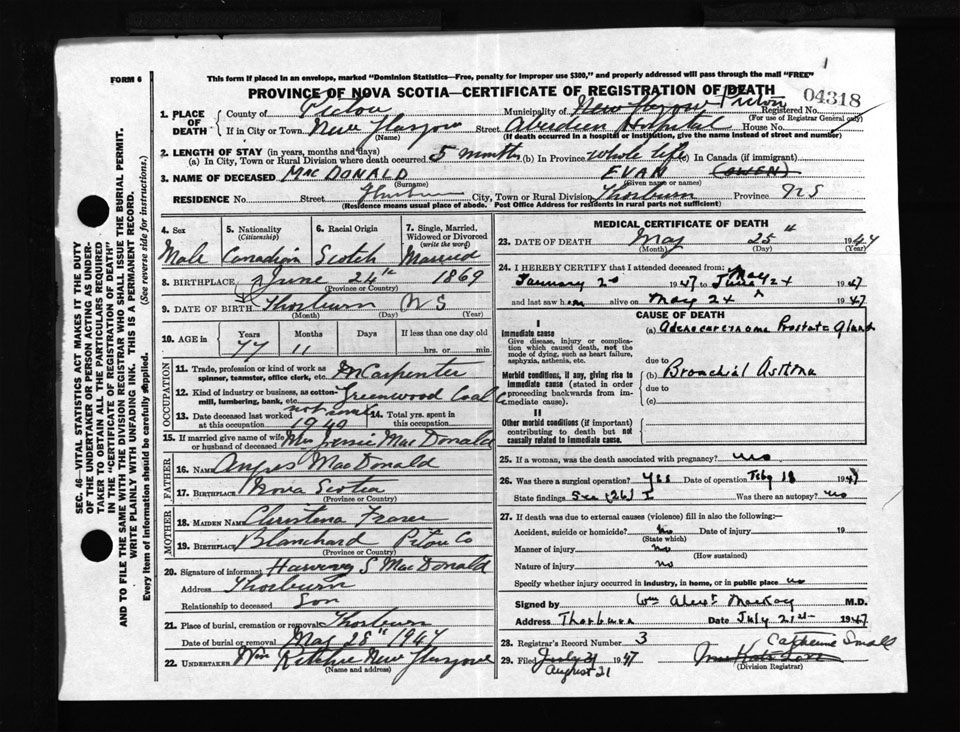 FORM 6
This form if placed in an envelope, marked "Dominion Statistics—Free, penalty for improper use $300," and properly addressed will pass through the mail "FREE"
PROVINCE OF NOVA SCOTIA—CERTIFICATE OF REGISTRATION OF DEATH
04318
1. PLACE OF DEATH
County of Pictou Municipality of New Glasgow Pictou Registered No.
(For use of Registrar General only)
If in City or Town New Glasgow Street Aberdeen Hospital House No.
(Name) (If death occurred in a hospital or institution, give the name instead of street and number)
2. LENGTH OF STAY (in years, months and days)
(a) In City, Town or Rural Division where death occurred 5 months (b) In Province whole life (c) In Canada (if immigrant)
3. NAME OF DECEASED MacDONALD EVAN (OWEN)
(Surname) (Given name or names)
RESIDENCE No. Street Thorburn City, Town or Rural Division Thorburn Province NS
(Residence means usual place of abode. Post Office Address for residents in rural parts not sufficient)
SEC. 46—VITAL STATISTICS ACT MAKES IT THE DUTY
OF THE UNDERTAKER OR PERSON ACTING AS UNDER-
TAKER TO OBTAIN ALL THE PARTICULARS REQUIRED
IN THE "CERTIFICATE OF REGISTRATION OF DEATH"
AND TO FILE THE SAME WITH THE DIVISION REGISTRAR WHO SHALL ISSUE THE BURIAL PERMIT.
WRITE PLAINLY WITH UNFADING INK. THIS IS A PERMANENT RECORD.
Every item of information should be carefully supplied. (See reverse side for instructions.)
4. Sex 5. Nationality (Citizenship) 6. Racial Origin 7. Single, Married, Widowed or Divorced (write the word)
Male Canadian Scotch Married
8. BIRTHPLACE June 24th 1869
(Province or Country)
9. DATE OF BIRTH Thorburn N S
(Month) (Day) (Year)
10. AGE in Years Months Days If less than one day old
77 11 hrs. or min.
OCCUPATION
11. Trade, profession or kind of work as spinner, teamster, office clerk, etc. Carpenter
12. Kind of industry or business, as cotton-mill, lumbering, bank, etc. Greenwood Coal Co
13. Date deceased last worked at this occupation 1940
14. Total yrs. spent in this occupation
15. If married give name of wife or husband of deceased Mrs Jessie MacDonald
FATHER
16. NAME Angus MacDonald
17. BIRTHPLACE Nova Scotia
(Province or Country)
MOTHER
18. MAIDEN NAME Christena Fraser
19. BIRTHPLACE Blanchard Pictou Co
(Province or Country)
20. Signature of informant Harving S MacDonald
Address Thorburn
Relationship to deceased Son
21. Place of burial, cremation or removal Thorburn
Date of burial or removal May 28th 1947
22. UNDERTAKER Wm Ritchie New Glasgow
(Name and address)
MEDICAL CERTIFICATE OF DEATH
23. DATE OF DEATH May 25th 1947
(Month) (Day) (Year)
24. I HEREBY CERTIFY that I attended deceased from:
January 20 1947 to May 24 1947
and last saw him alive on May 24 1947
CAUSE OF DEATH
I
Immediate cause (a) Adenocarcinoma Prostate Gland
Give disease, injury or complication which caused death, not the mode of dying, such as heart failure, asphyxia, asthenia, etc.
due to
Morbid conditions, if any, giving rise to immediate cause (stated in order proceeding backwards from immediate cause).
(b) Bronchial Asthma
due to
(c)
II
Other morbid conditions (if important) contributing to death but not causally related to immediate cause.
25. If a woman, was the death associated with pregnancy? no
26. Was there a surgical operation? Yes Date of operation Feby 18 1947
State findings See (26) I Was there an autopsy? no
27. If death was due to external causes (violence) fill in also the following:—
Accident, suicide or homicide? no Date of injury 19
(State which)
Manner of injury no
(How sustained)
Nature of injury no
Specify whether injury occurred in industry, in home, or in public place no
Signed by Wm Alex MacKay M.D.
Address Thorburn Date July 21st 1947
28. Registrar's Record No. 3 Catherine Small
29. Filed July 31 1947
August 21 (Division Registrar)